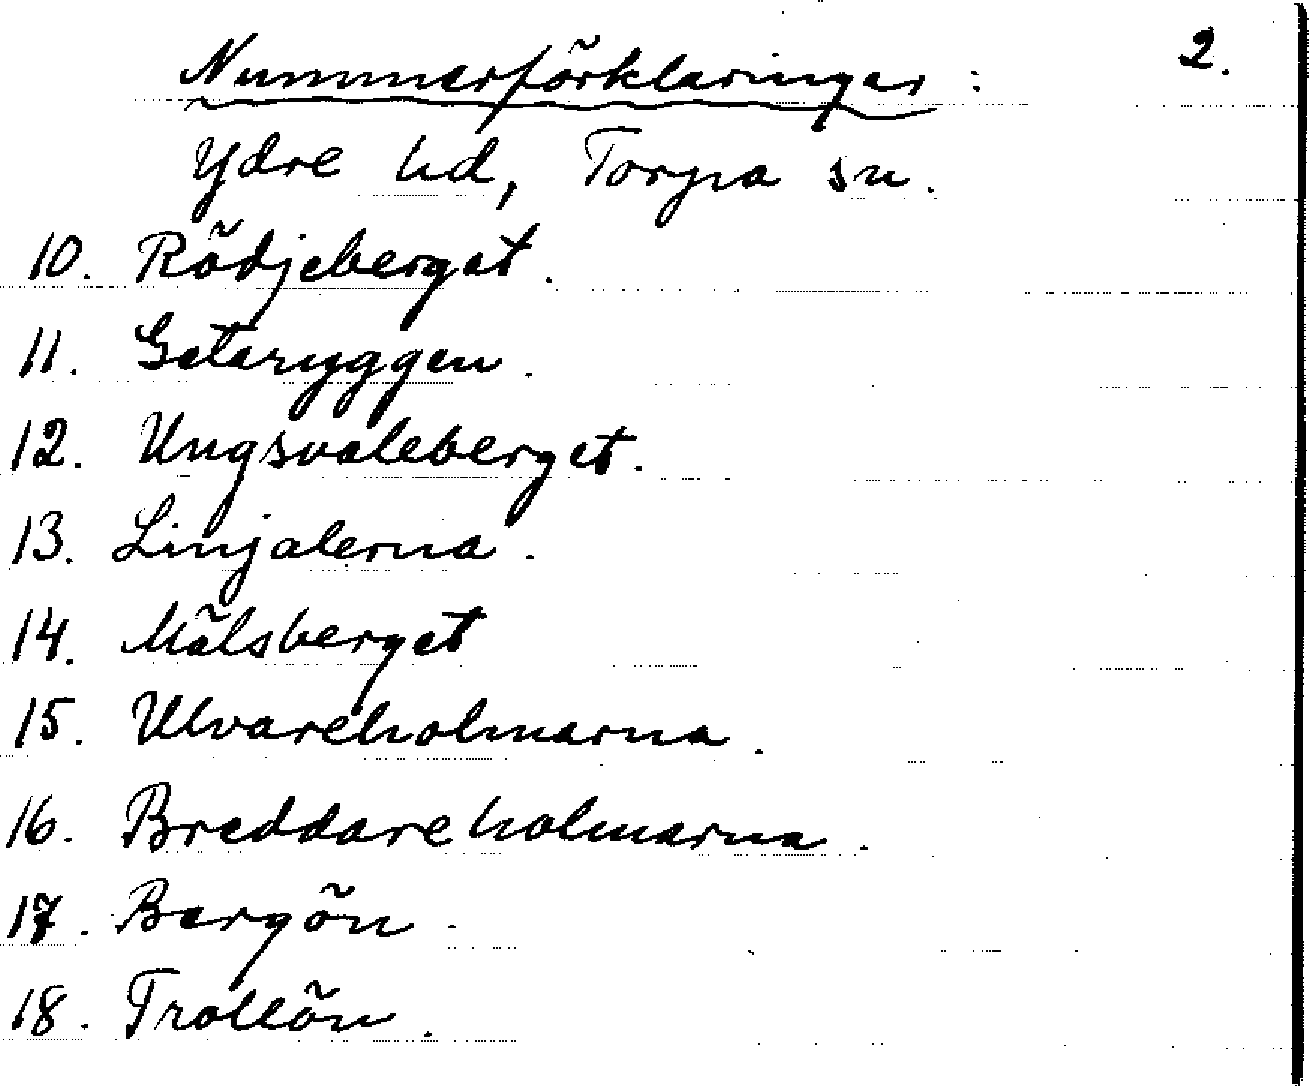 2.
Nummerförklaringar:
Ydre hd, Torpa sn.
10. Rödjeberget.
11. Getaryggen.
12. Ungsvaleberget.
13. Linjalerna.
14. Målsberget
15. Ulvareholmarna.
16. Breddareholmarna.
17. Bergön.
18. Trollön.